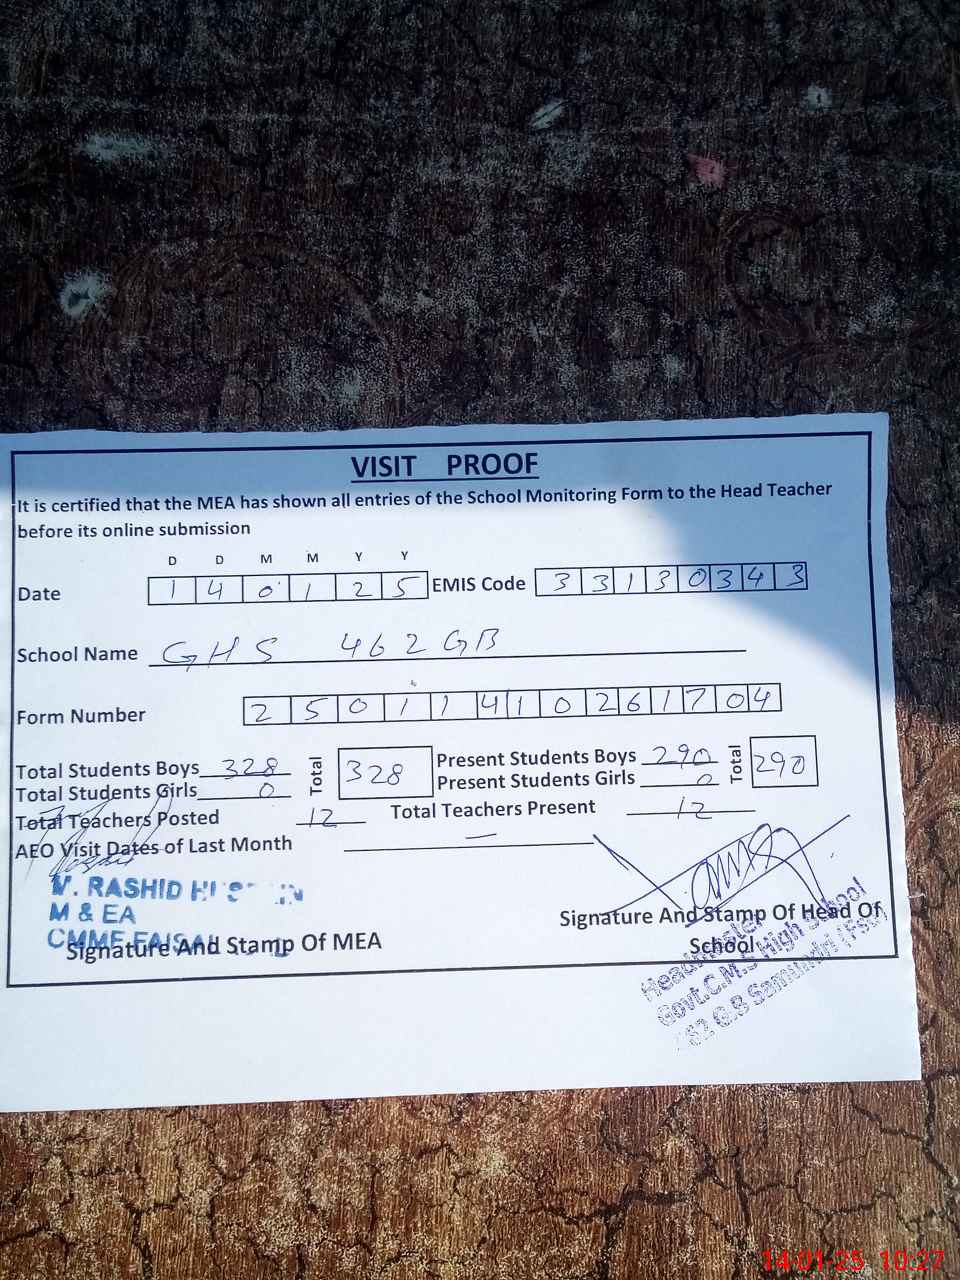 VISIT PROOF
It is certified that the MEA has shown all entries of the School Monitoring Form to the Head Teacher
before its online submission
D D M M Y Y
Date 1 4 0 1 2 5 EMIS Code 3 3 1 3 0 3 4 3
School Name GHS 462 GB
Form Number 2 5 0 1 1 4 1 0 2 6 1 7 0 4
Total Students Boys 328 Total 328 Present Students Boys 290 Total 290
Total Students Girls 0 Present Students Girls 0
Total Teachers Posted 12 Total Teachers Present 12
AEO Visit Dates of Last Month —
RASHID
M & EA
CMME
Signature And Stamp Of MEA
Signature And Stamp Of Head Of
School
Headmaster
Govt. High School
G.B Samundri
14-01-25 10:27